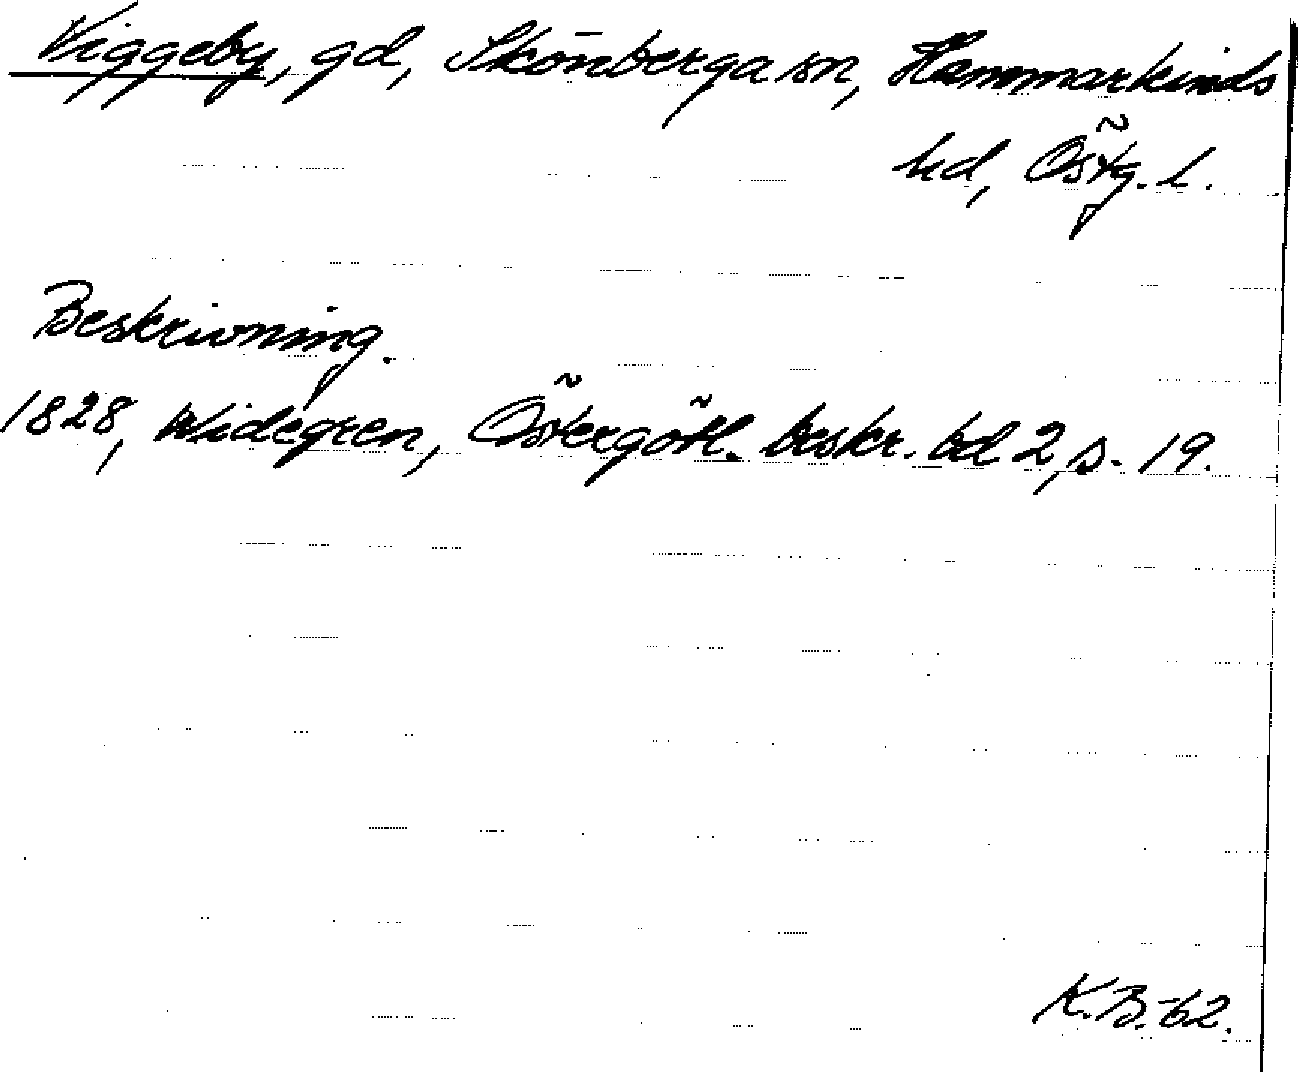 Viggeby, gd, Skönberga sn, Hammarkinds
hd, Östg. l.
Beskrivning.
1828, Widegren, Östergötl. beskr. bd 2, s. 19.
K.B.-62.